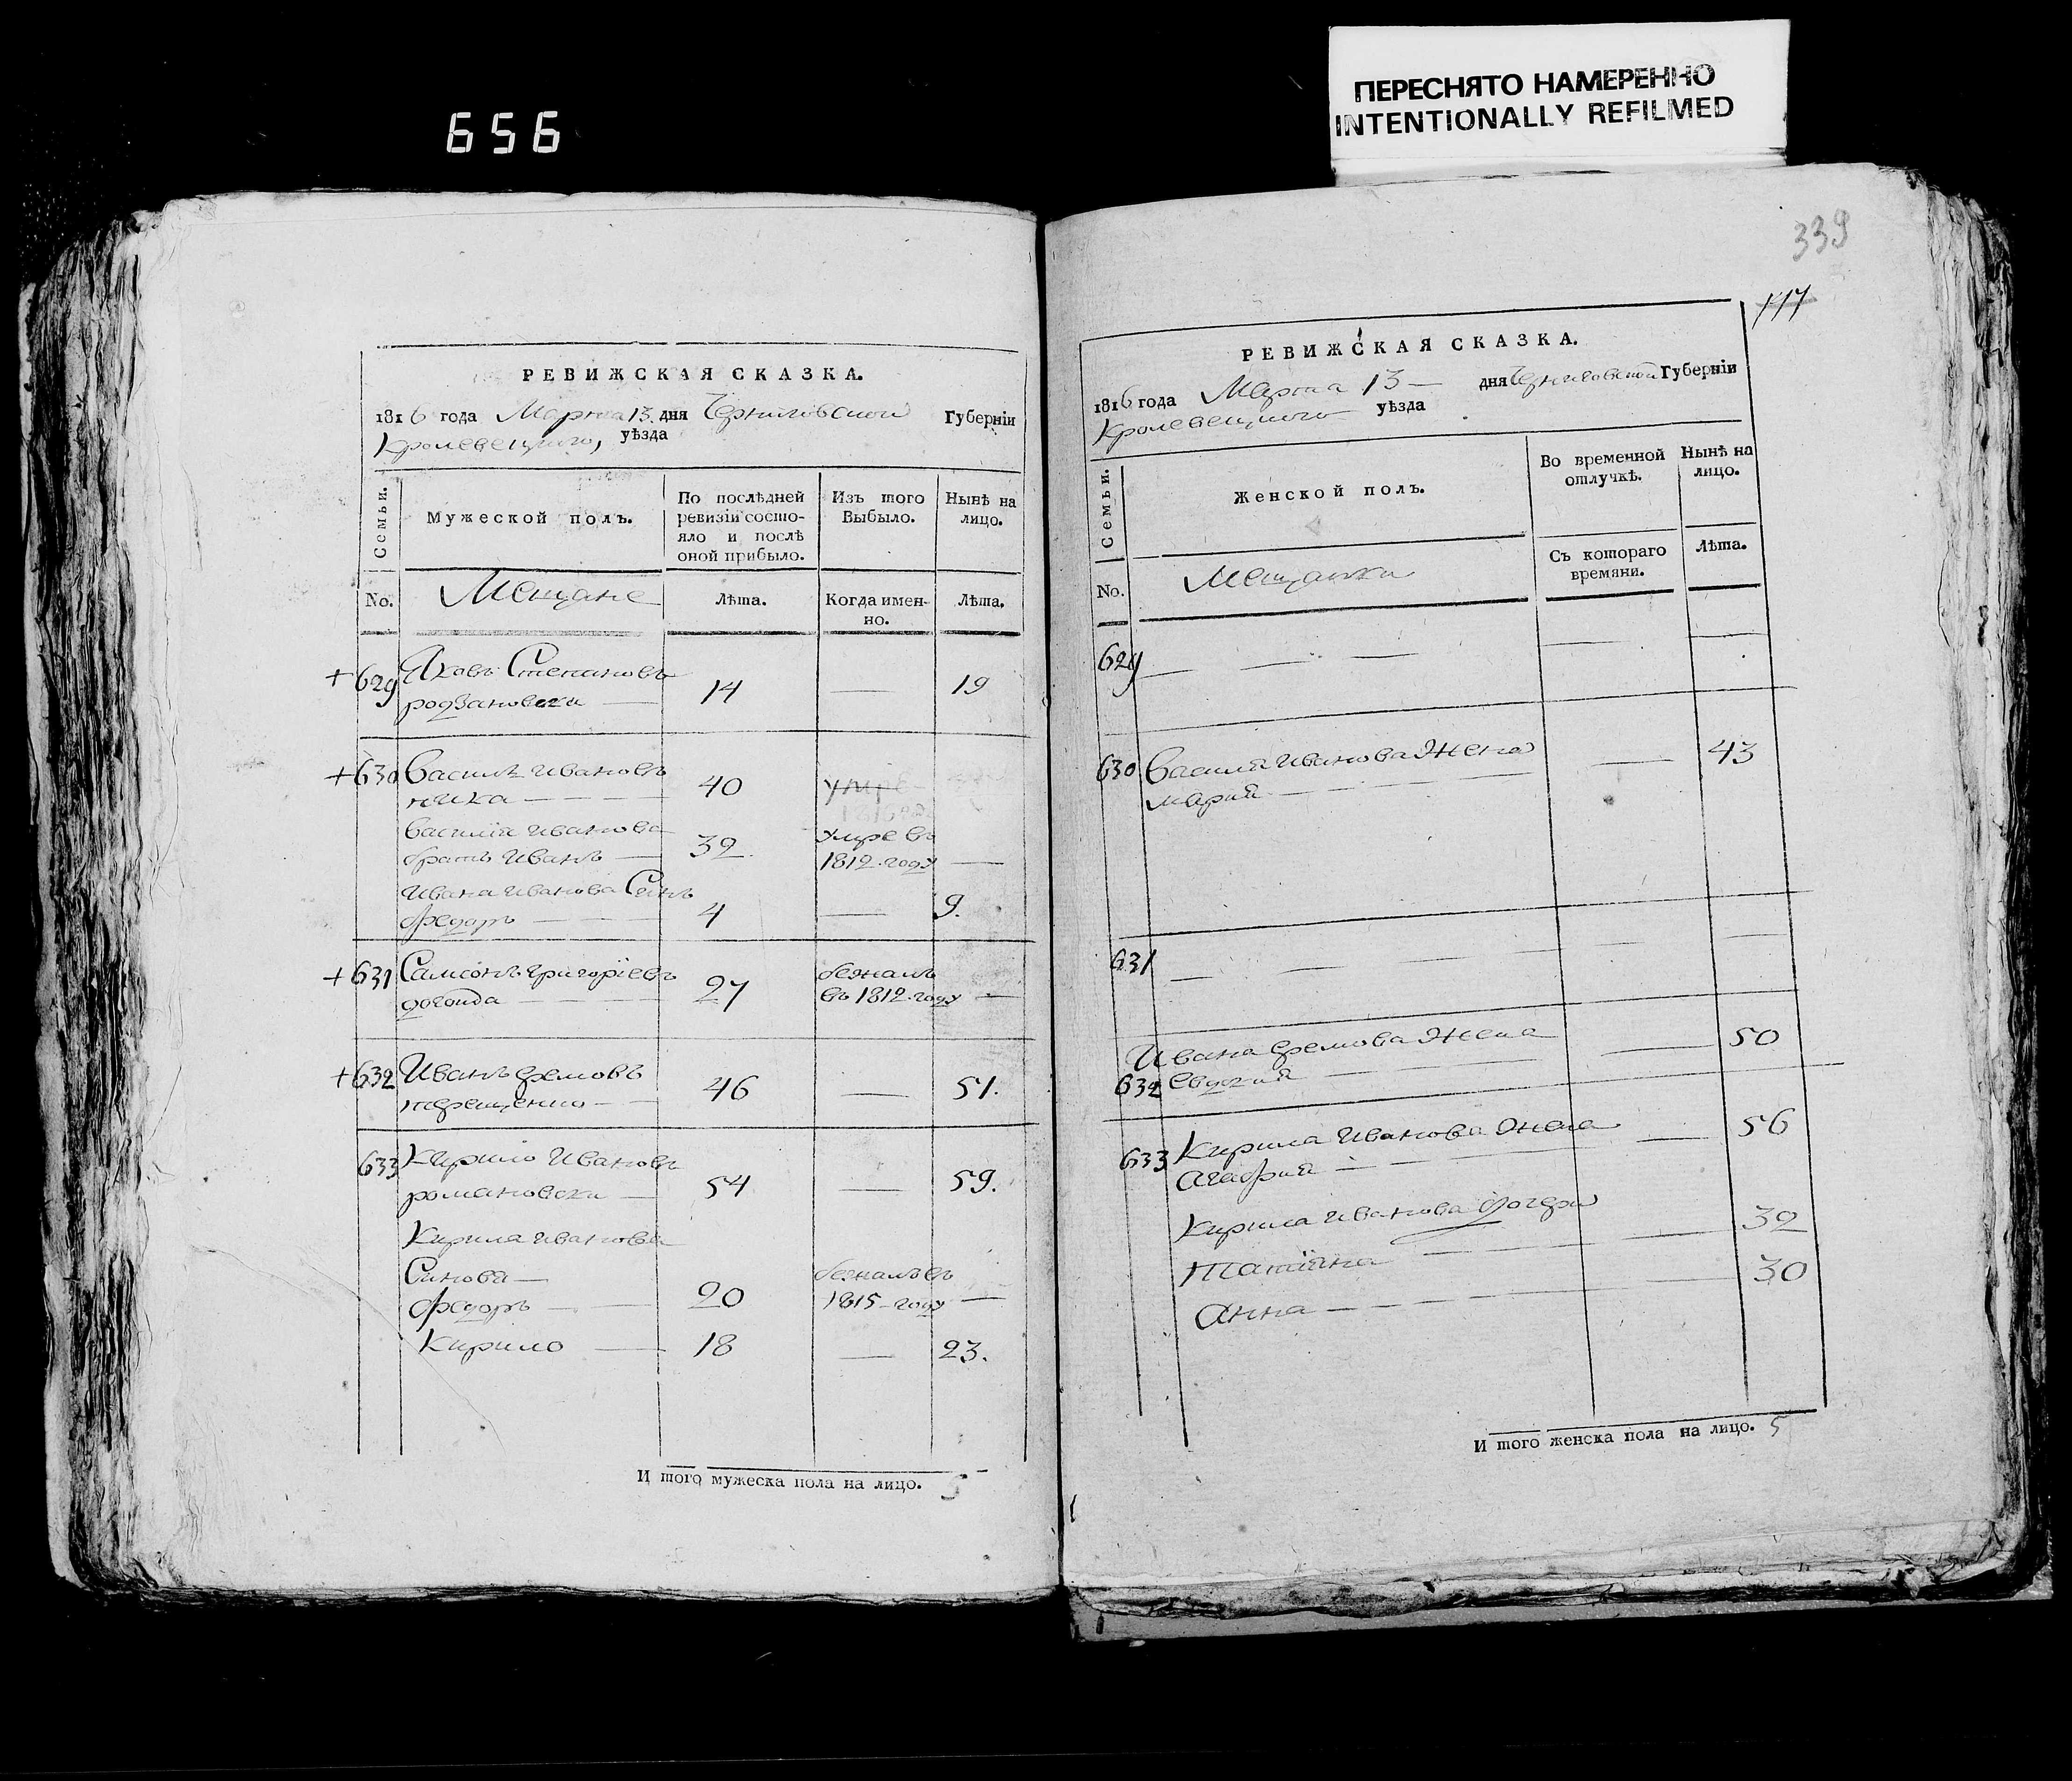 656
ПЕРЕСНЯТО НАМЕРЕННО
INTENTIONALLY REFILMED
РЕВИЖСКАЯ СКАЗКА.
1816 года Марта 13 дня Черниговской Губерніи
Кролевецкого, уѣзда
Семьи.
Мужеской полъ.
По послѣдней
ревизіи состо-
яло и послѣ
оной прибыло.
Изъ того
Выбыло.
Нынѣ на
лицо.
No.
Мещане
Лѣта.
Когда имен-
но.
Лѣта.
+629 Яковъ Степановъ
родзановски 14 — 19
+630 Василь Ивановъ
40
Василія Иванова
братъ Иванъ — 32. умре въ
1812 году —
Ивана Иванова Синъ
Федоръ — 4 — 9.
+631 Самсонъ Григоріевъ
27 бежалъ
въ 1812 году —
+632 Иванъ Ефремовъ
терещенко — 46 — 51.
633 Кирило Ивановъ
романовски — 54 — 59.
Кирила Иванова
Синова —
Федоръ — 20 бежалъ въ
1815 году —
Кирило — 18 — 23.
И того мужеска пола на лицо. 5
339
РЕВИЖСКАЯ СКАЗКА.
1816 года Марта 13 — дня Черниговской Губерніи
Кролевецкого уѣзда
Семьи.
Женской полъ.
Во временной
отлучкѣ.
Нынѣ на
лицо.
Съ котораго
времяни.
Лѣта.
No.
Мещанки
629 — — —
630 Василія Иванова Жена
Марія — — — 43
631 — — —
Ивана Ефремова Жена
632 Евдокія — — 50
633 Кирила Иванова Жена
Агафия — — 56
Кирила Иванова дочери
Татіяна — — 32
Анна — — — 30
И того женска пола на лицо. 5